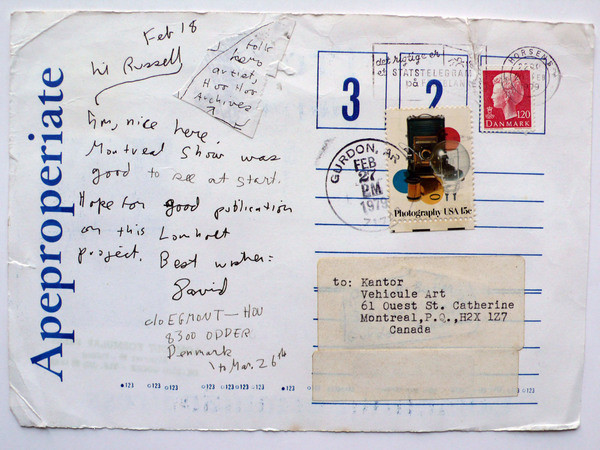 Apeproperiate
Feb 18
Hi Russell,
folk
hero
artist,
Hoo Hoo
Archives
?
Hm, nice here.
Montreal Show was
good to see at start.
Hope for good publication
on this Lomholt
project. Best wishes =
David
c/o EGMONT—HØJ
8300 ODDER
Denmark
to Mar. 26th
det rigtige er
et STATSTELEGRAM
på
HORSENS
FEB
3 2
120
DANMARK
GURDON, AR
FEB
27
PM
1979
Photography USA 15c
to: Kantor
Vehicule Art
61 Ouest St. Catherine
Montreal,P.Q.,H2X 1Z7
Canada
123 123 123 123 123 123 123